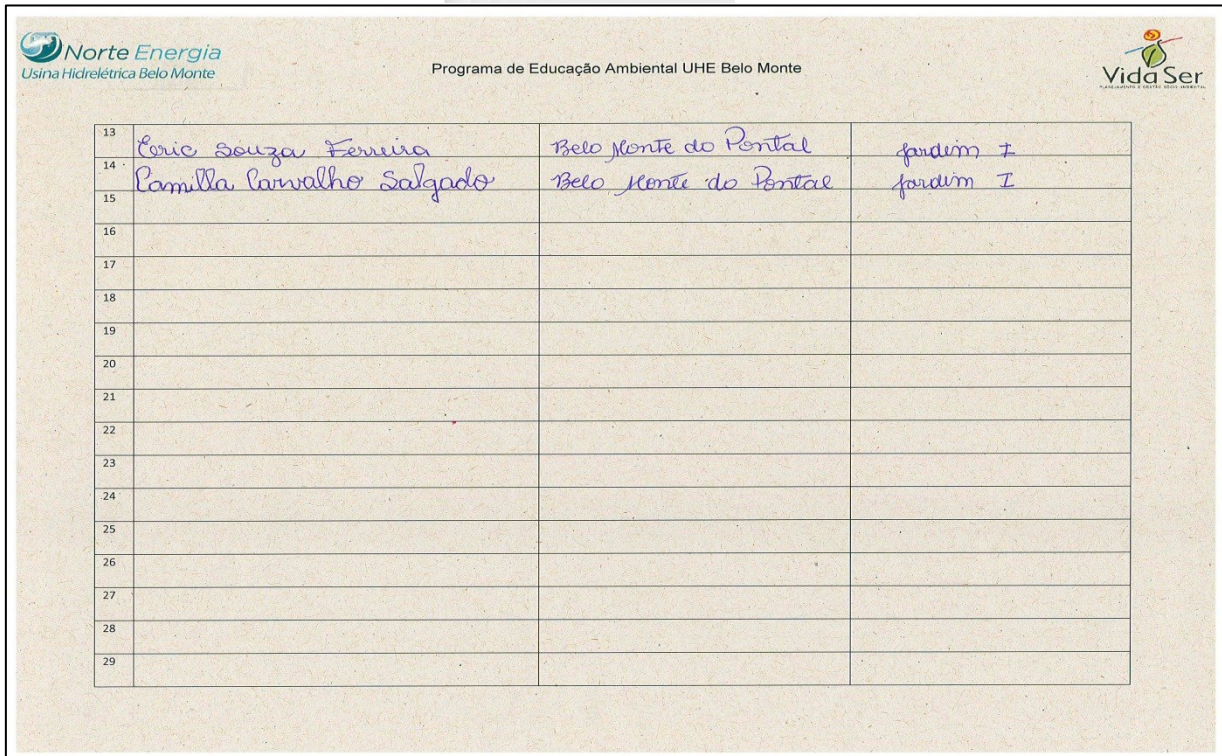 Norte Energia
Usina Hidrelétrica Belo Monte
Programa de Educação Ambiental UHE Belo Monte
Vida Ser
PLANEJAMENTO E GESTÃO SÓCIO AMBIENTAL
13 Eric Souza Ferreira Belo Monte do Pontal Jardim I
14 Camilla Carvalho Salgado Belo Monte do Pontal Jardim I
15
16
17
18
19
20
21
22
23
24
25
26
27
28
29